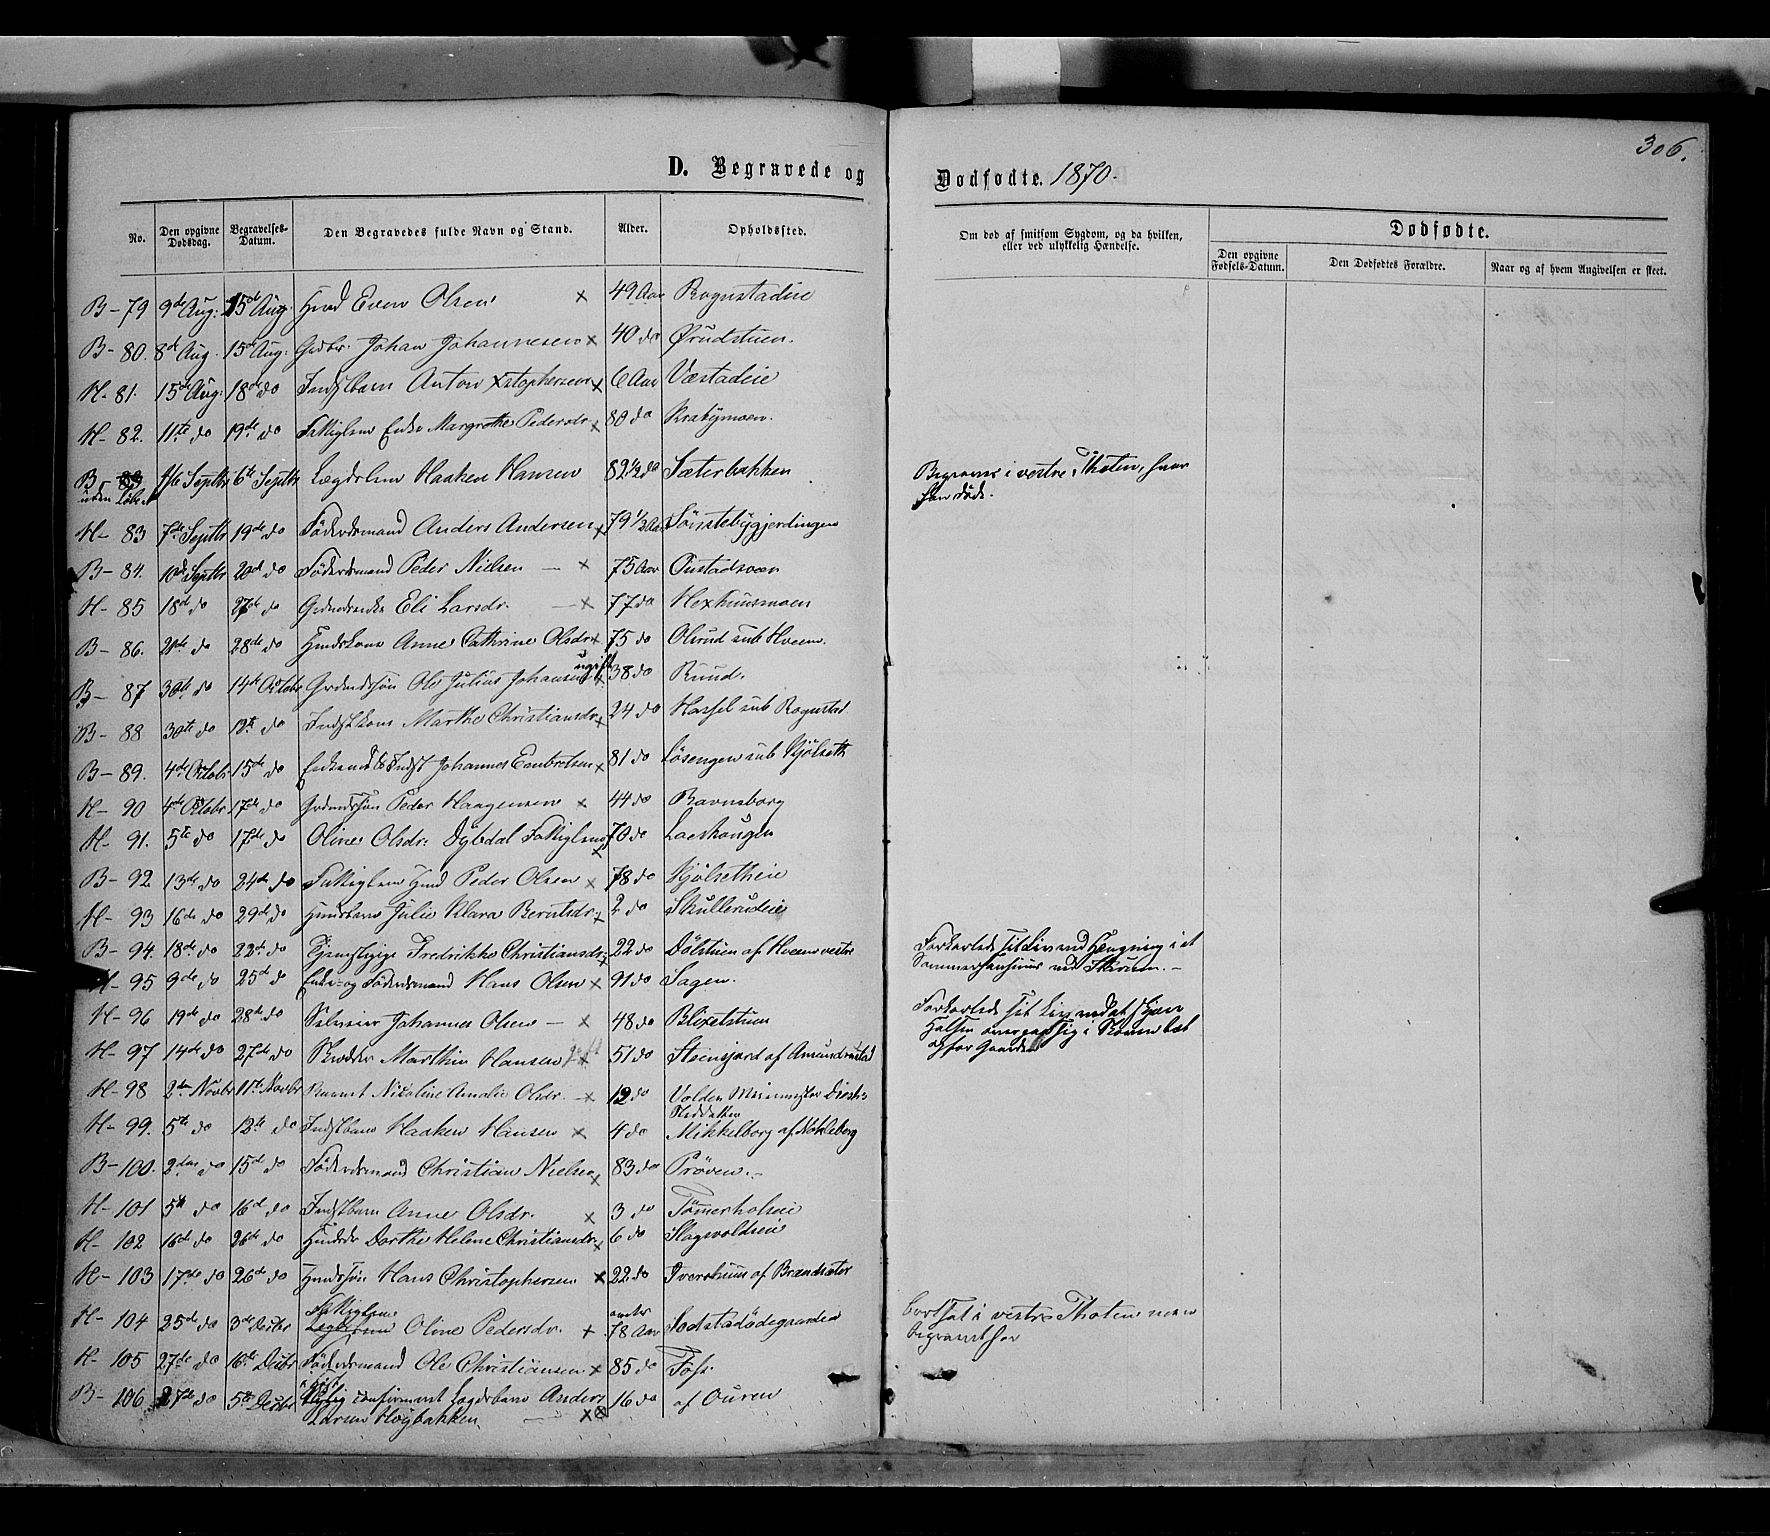 306.
D. Begravede og Dødfødte. 1870.
No. Den opgivne Dødsdag. Begravelses-Datum. Den Begravedes fulde Navn og Stand. Alder. Opholdssted. Om død af smitsom Sygdom, og da hvilken, eller ved ulykkelig Hændelse. Dødfødte.
Den opgivne Fødsels-Datum. Den Dødfødtes Forældre. Naar og af hvem Angivelsen er skeet.
B- 79 9de Aug: 15de Aug: Hmd Even Olsen x 49 Aar Rognstadeie
B- 80. 8de Aug. 15de Aug: Grdbr. Johan Johannesen x 40 do Ørudstuen.
H- 81. 15de Aug: 18de do Indstbarn Anton Xstophersen x 6 Aar Væstadeie
H- 82. 11te do 19de do Fattiglem Enke Margrethe Pedersdr. x 80 do Krabymoen.
B- 83 uden Løbe 1/6 Septbr 6te Septbr Lægdslem Haaken Hansen 82 1/2 do Sæterbakken Begraves i vestre Thoten, hvor
han døde.
H- 83 7de Septbr 19de do Føderaadsmand Anders Andersen x 79 1/2 Aar Sønstebygjerdingen
B- 84. 10de Septbr 20de do Føderaadsmand Peder Nielsen - x 75 Aar
H- 85 18de do 27de do Eli Larsdr. - x 77 do Hexhuusmoen
B- 86. 21de do 28de do Huusmdskone Anne Cathrine Olsdr x 75 do Olsrud sub Hveem.
B- 87 30te do 14de Octobr Grdmdssøn Ole Julius Johansen ugift x 38 do Ruud.
B- 88 30te do 13te do Indstkone Marthe Christiansdr x 24 do Hassel sub Rognstad
B- 89. 4de Octobr 15de do Enkemd & Indst Johannes Embretsen x 81 do Løsengen sub Kjølseth
H- 90 4de Octobr. 17de do Grdmdssøn Peder Haagensen x 44 do Ravnsborg
H- 91. 5te do 17de do Oline Olsdr. Dybdal Fattiglem x 70 do
B- 92 13de do 24de do Fattiglem Hmd Peder Olsen x 78 do Kjølsetheie
H- 93 16de do 29de do Hmdsbarn Julie Klara Berntsdr x 2 do Skullerudeie
B- 94. 18de do 22de do Tjenestepige Fredrikke Christiansdr. x 22 do Dølstuen af Hveem vestre Forkortede sit Liv ved Hængning i et
Sommerfæhuus ved Skirum. -
H- 95 9de do 25de do Enke- og Føderaadsmand Hans Olsen x 91 do Sagen.
H- 96 19de do 28de do Selveier Johannes Olsen - x 48 do Blixelstuen Forkortede sit Liv ved at skjære
Halsen over paa sig i Skoven tæt
ovfor Gaarden
H- 97 14de do 27de do Skrædder Marthin Hansen gift x 51 do Steensjord af Amundrustad
H- 98 2den Novbr 11te Novbr Nicoline Amalie Olsdr. - x 12 do Volden
Steddatter
H- 99. 5te do 12te do Indstbarn Haaken Hansen x 4 do Mikkelborg af Nøkleberg
B- 100. 2den do 15de do Føderaadsmand Christian Nielsen x 83 do Prøven. -
H- 101 5te do 16de do Indstbarn Anne Olsdr. x 3 do Tømerholseie
H- 102 16de do 26de do Dorthe Helene Christiansdr. x 6 do Slagsvoldseie
H- 103 17de do 26de do Hmdssøn Hans Christophersen x 22 do Iverstuen af Brandsæter
H- 104 25de do 3de Decbr Fattiglem Oline Pedersdr. x 78 Aar Sodstadødegaarden bortsat i vestre Thoten men
begravet her
H- 105 27de do 16de Decbr Føderaadsmand Ole Christiansen x 85 do Foss
B- 106 27de do 5te Decbr confirmeret Lægdsbarn Anders 16 do af Ouren
Larsen Høybakken - x